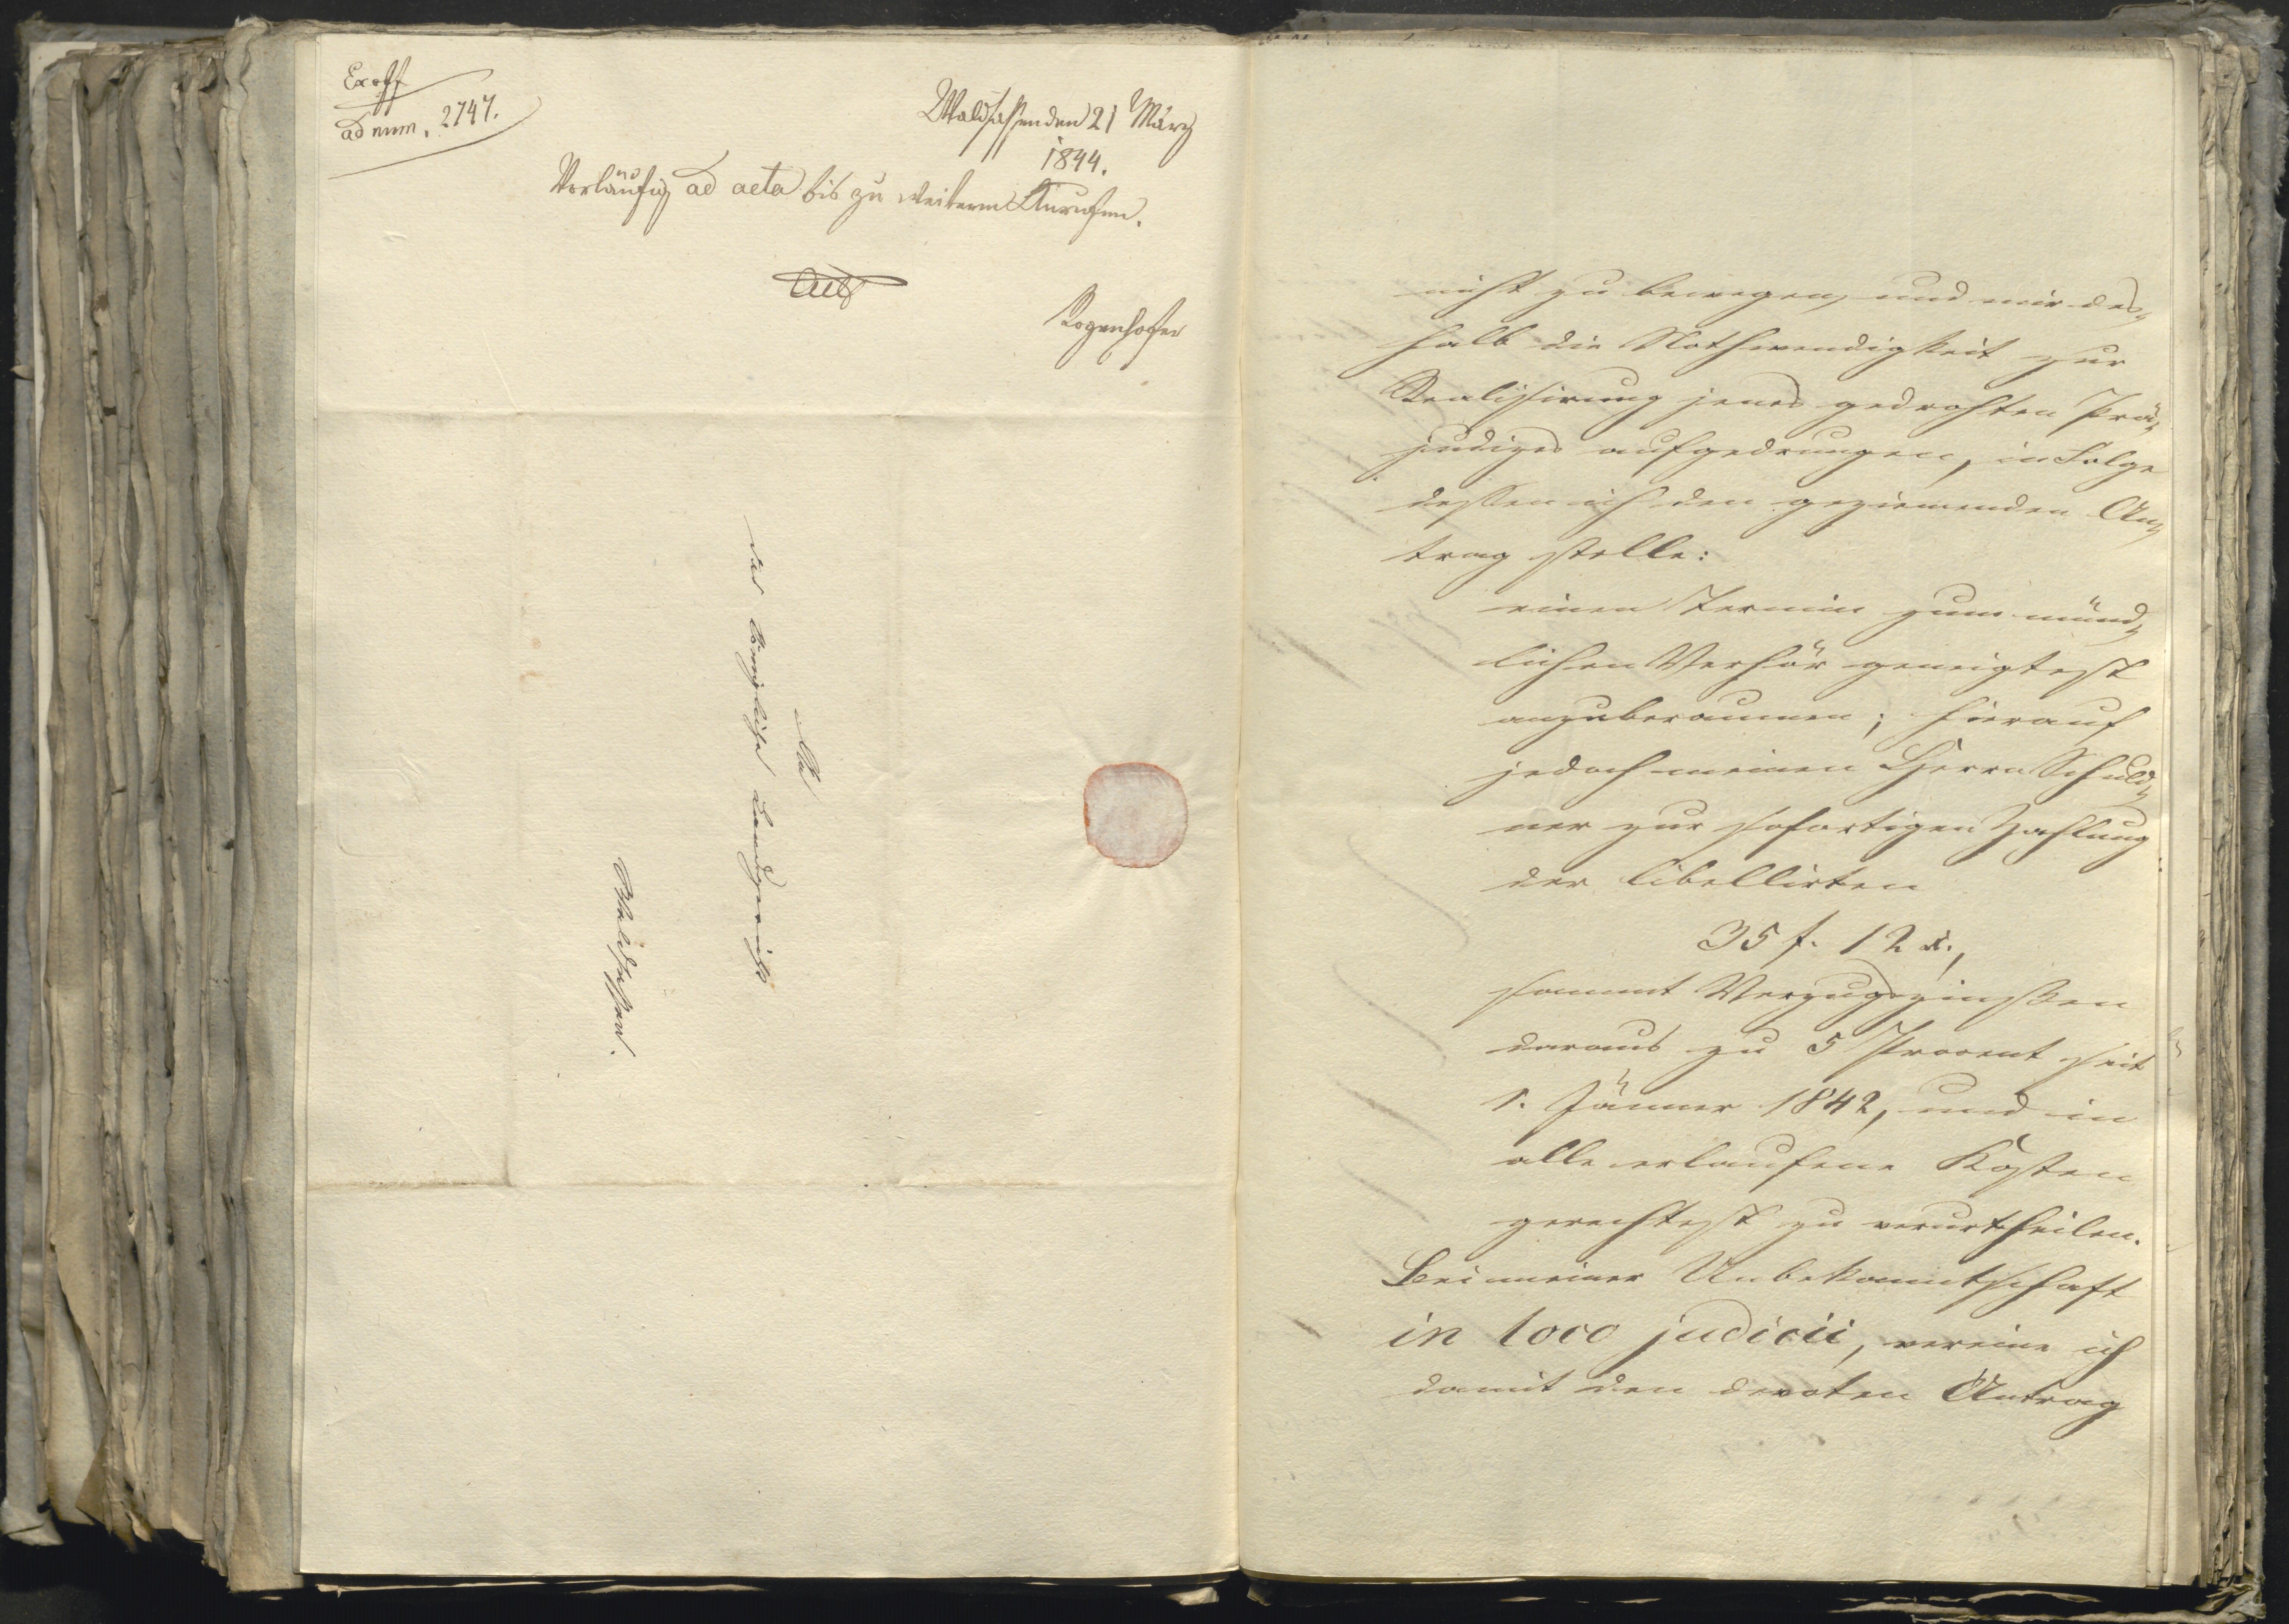 Ex off
ad num. 2747.
Waldsassen den 21 März
1844.
Vorläufig ad acta bis zu weiterm Anrufen.
Rogenhofer
An
das Königliche Landgericht
Waldsassen.
nicht zu bewegen, und mir des„
halb die Nothwendigkeit zur
Realisirung jenes gedrohten Prä„
judizes aufgedrungen, in Folge
dessen ich den geziemenden An„
trag stelle:
einen Termin zum münd„
lichen Verhör geneigtest
anzuberaumen; hierauf
jedoch meinen Herrn Schuld„
ner zur sofortigen Zahlung
der libellirten
35 f. 12 x.,
sammt Verzugszinsen
daraus zu 5 Procent seit
1. Jänner 1842, und in
alle erlaufene Kosten
gerechtest zu verurtheilen.
Bei meiner Unbekanntschaft
in loco judicii, vereine ich
damit den devoten Antrag